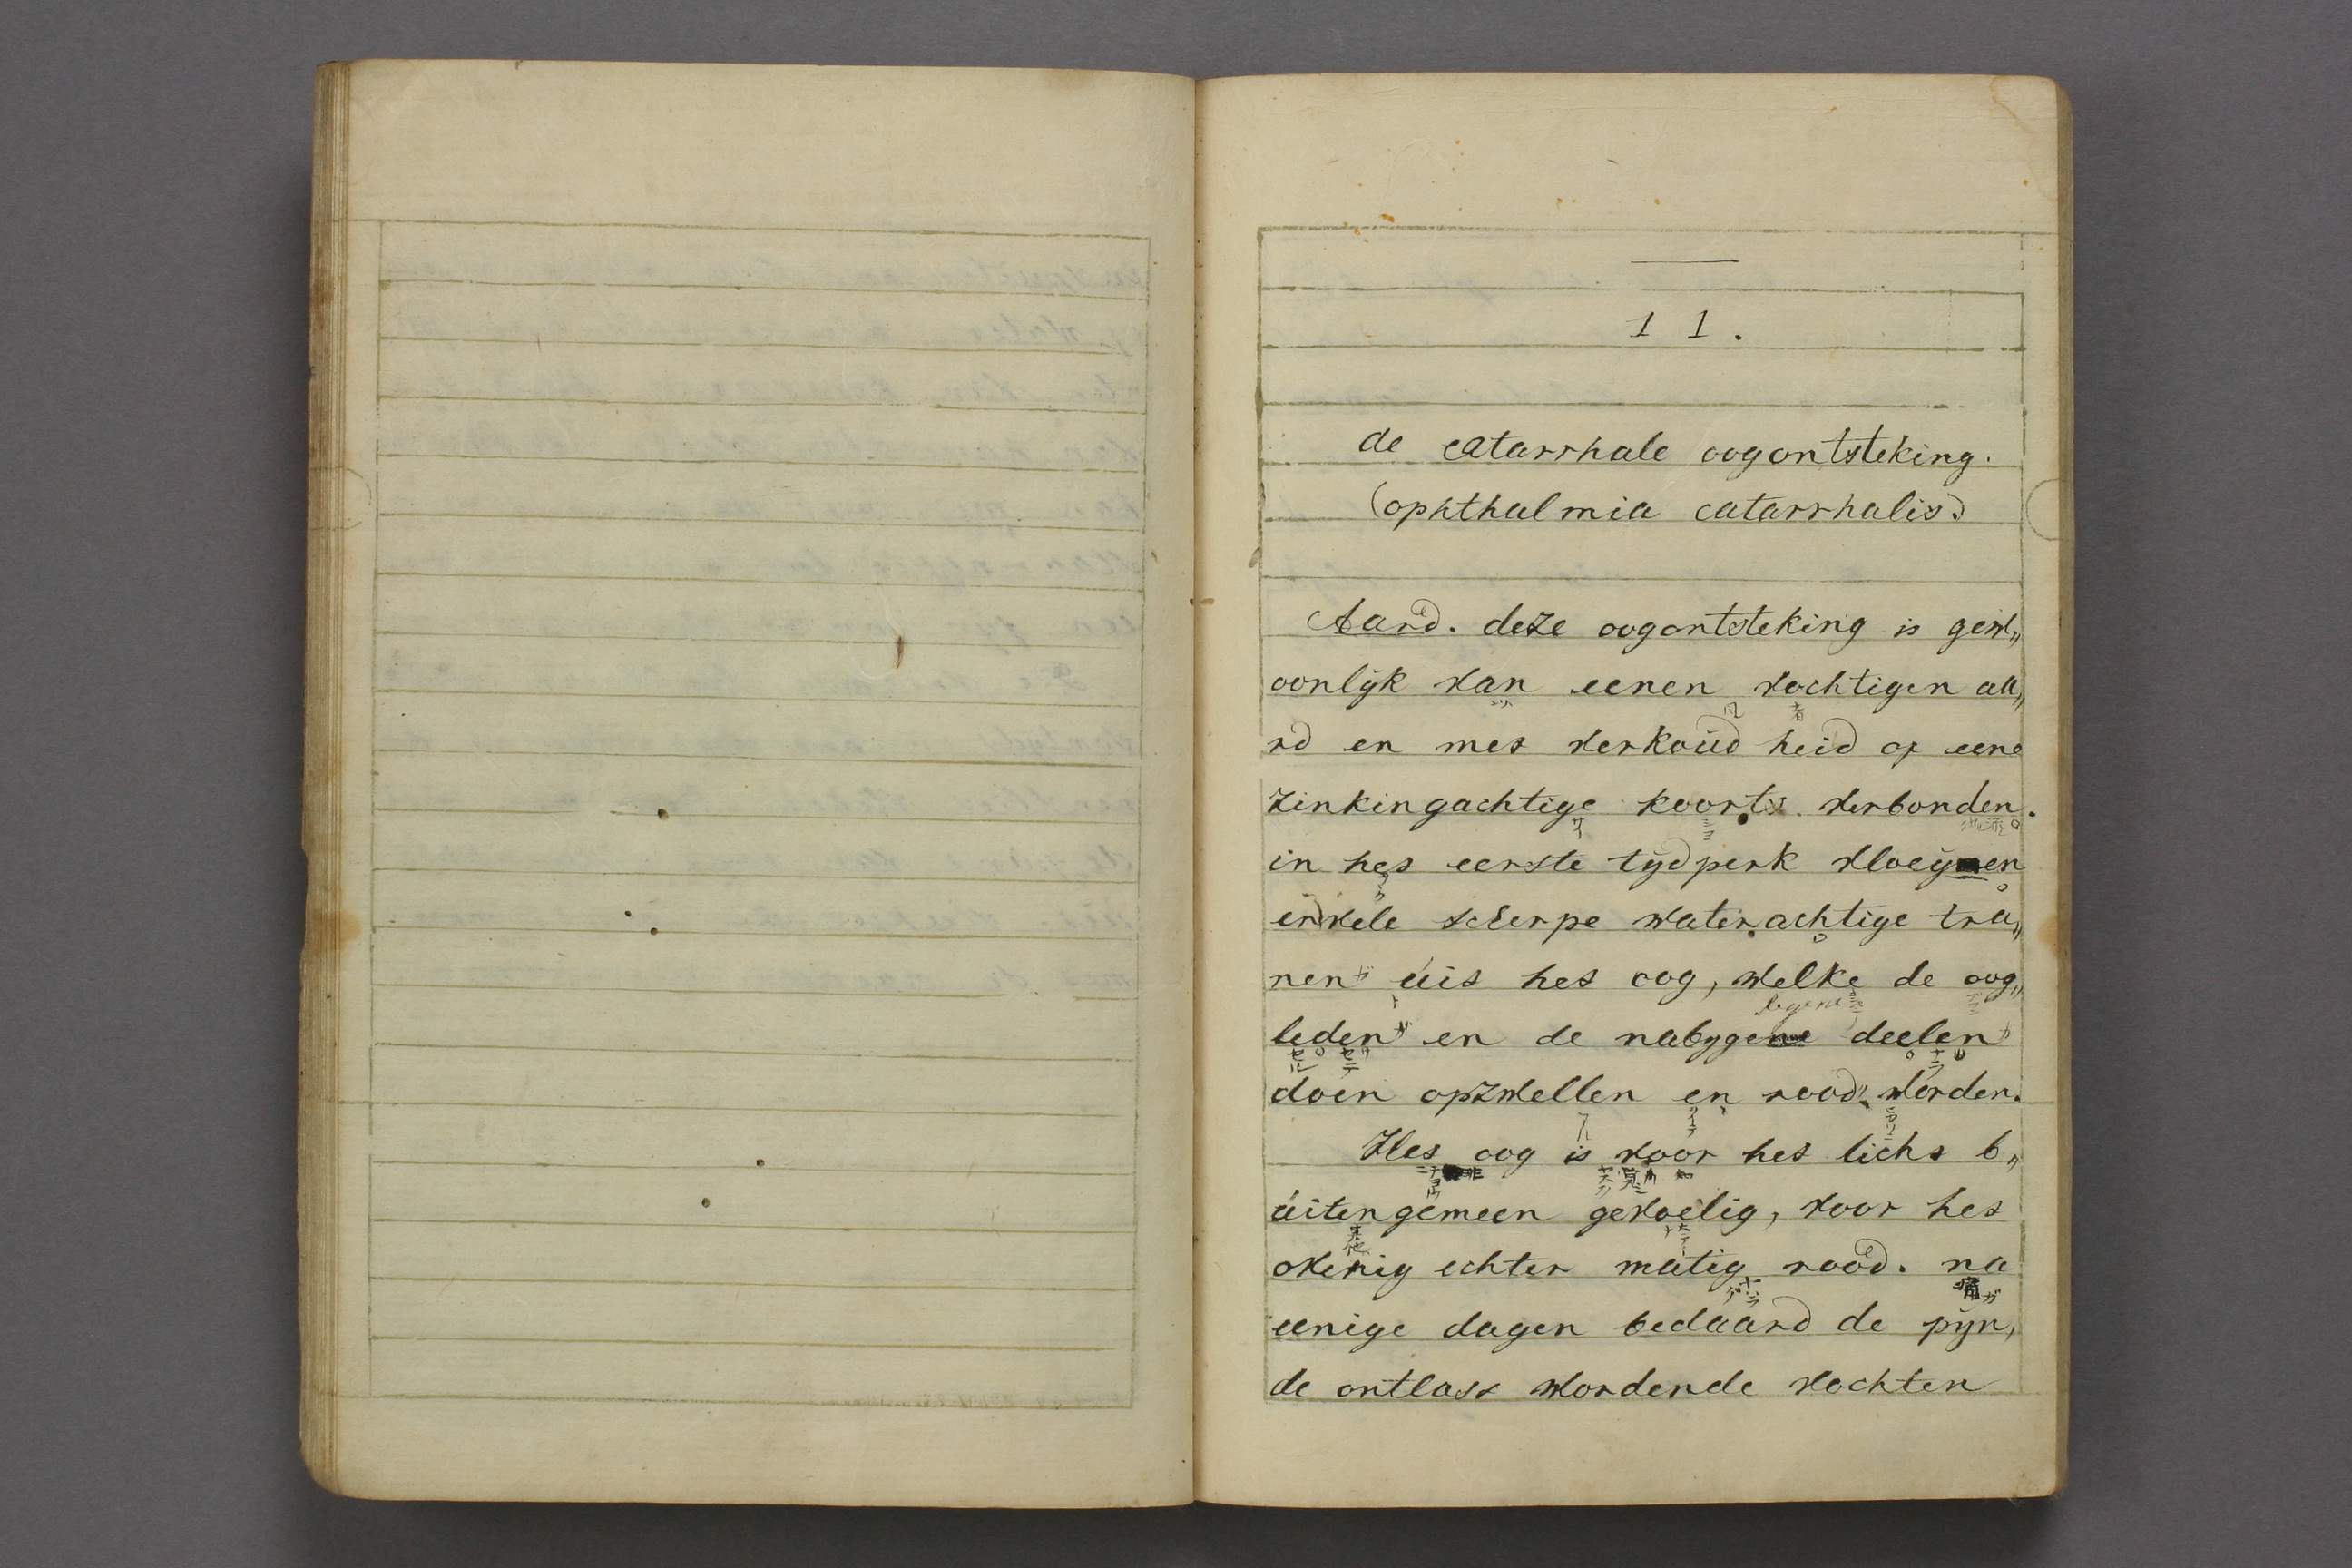 11.
de catarrhale oogontsteking.
(ophthalmia catarrhalis)
Aard. deze oogontsteking is gew„
oonlijk van eenen vochtigen aa„
rd en met verkoúd heid of eene
zinkingachtige koorts verbonden.
in het eerste tijdperk vloeijen
enkele scherpe waterachtige tra„
nen úit het oog, welke de oog„
leden en de nabyge deelen
doen opzwellen en rood worden.
Het oog is voor het licht b„
úitengemeen gevoelig, voor het
overig echter matig rood. na
eenige dagen bedaard de pijn,
de ontlast wordende vochten